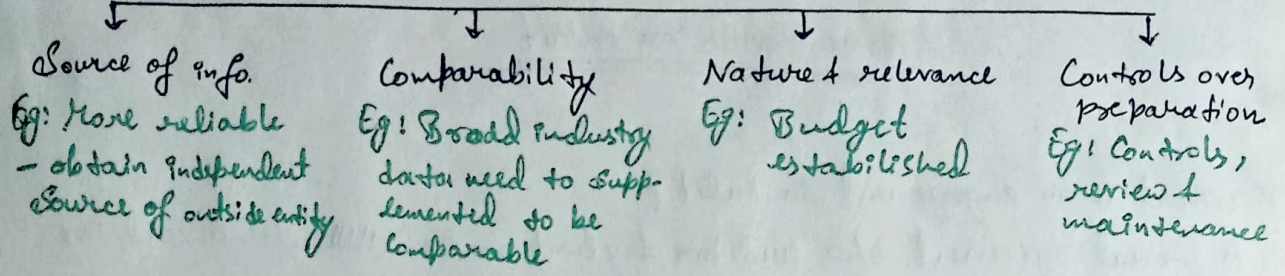 Source of info.
Eg: More reliable
- obtain independent
Source of outside entity
Comparability
Eg: Broad industry
data need to supp-
lemented to be
Comparable
Nature & relevance
Eg: Budget
estabilished
Controls over
preparation
Eg: Controls,
review &
maintenance